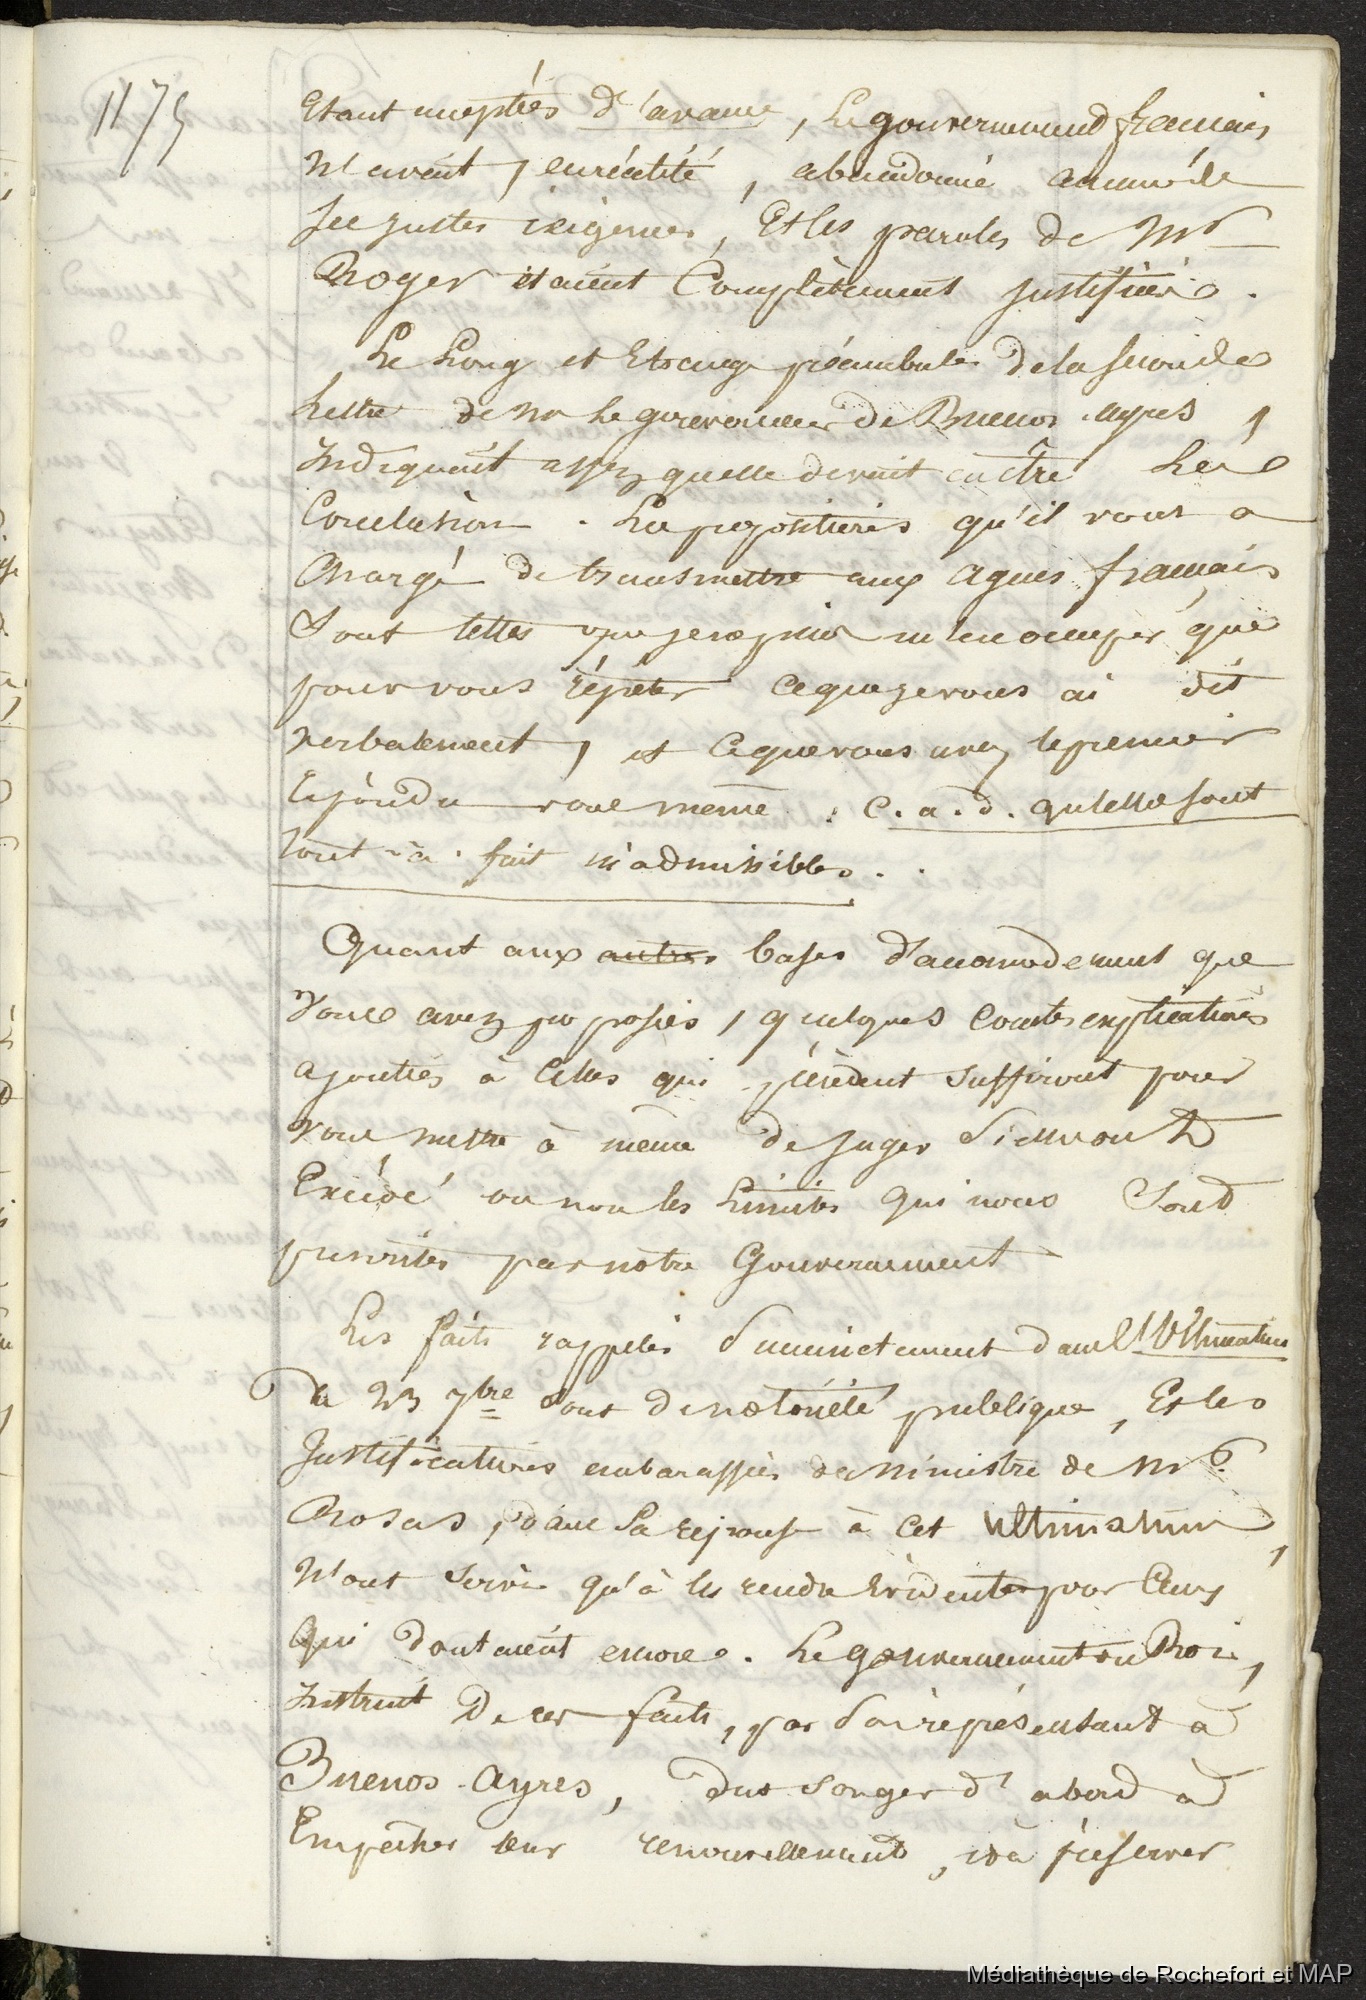 1175
étant acceptées d'avance, le gouvernement français
n'avait, en réalité, abandonné aucune de
ses justes exigences, et les paroles de Mr
Roger étaient complètement justifiées.
Le long et étrange préambule de la seconde
lettre de Mr le gouverneur de Buenos-ayres,
indiquait assez quelle devait en être la
conclusion. Les propositions qu'il vous a
chargé de transmettre aux agens français
sont telles que je ne puis m'en occuper que
pour vous répéter ce que je vous ai dit
verbalement, et ce que vous avez le premier
répondu vous même : c.a.d. qu'elles sont
tout-à-fait inadmissibles.
Quant aux autres bases d'accomodement que
vous avez proposées, quelques courtes explications
ajoutées à celles qui précèdent suffiront pour
vous mettre à même de juger si elles ont
excédé ou non les limites qui nous sont
prescrites par notre Gouvernement
Les faits rappelés succinctement dans l'Ultimatum
du 23 7bre sont de notoriété publique, et les
justifications embarassées du ministre de Mr.
Rosas, dans sa réponse à cet ultimatum,
n'ont servi qu'à les rendre évidentes pour ceux
qui doutaient encore. Le gouvernement du Roi,
instruit de ces faits, par son représentant à
Buenos-Ayres, dut songer d'abord à
empêcher leur renouvellement, et à préserver
Médiathèque de Rochefort et MAP